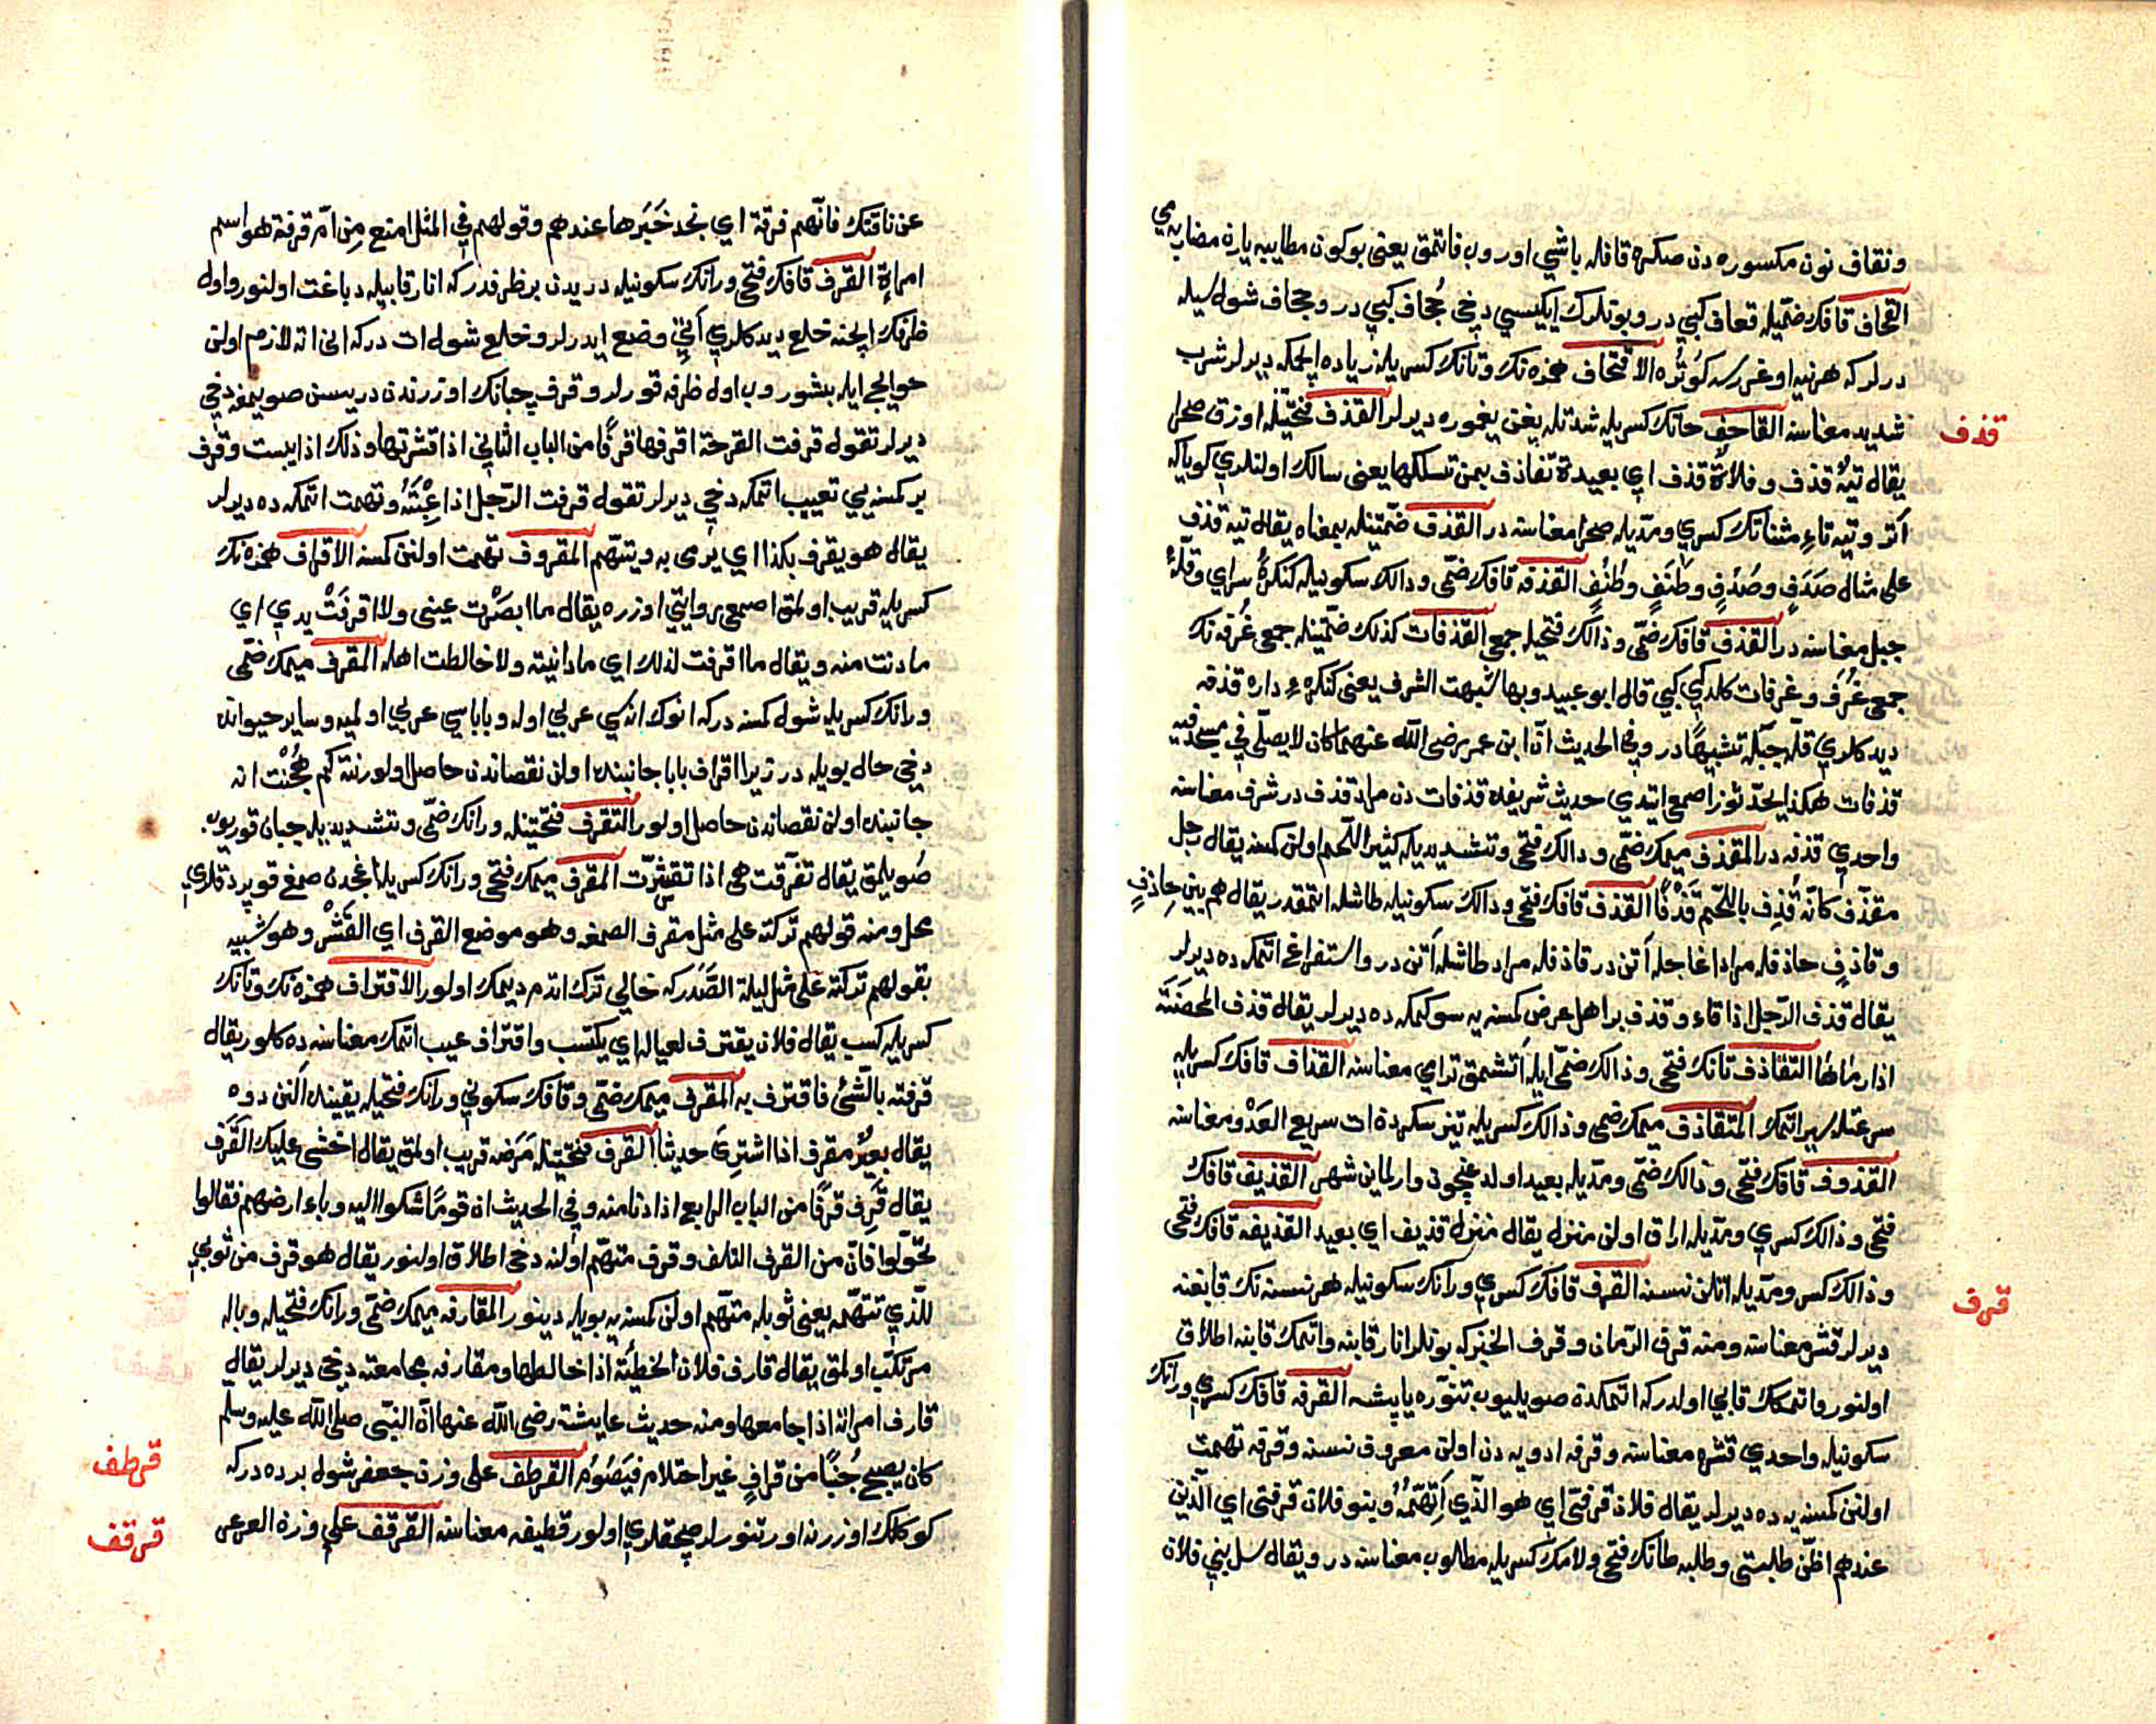 ونقاف نون مكسوره دن صكره قافله باشي اوروب قاتمق يعني بوكون مطايبه يارن مضاربه مي
القحاف قافك ضمّيله قعاف كبي در وبونلرك ايكيسي دخي جُحاف كبي در وجحاف شول سيله
درلر كه هر نيه اوغررسه كوتُره الاقتحاف همزه نك وتانك كسريله زياده ايچمكه ديرلر شرب
شديد معناسنه القاحف حانك كسريله شدتله يغن يغموره ديرلر القذف فتحتيله اوزق صحرا
قذف
يقال تيهٌ قذف وفلاةٌ قذف اي بعيدة تقاذف بمن تسلكها يعني سالك اولنلري كويا كه
آتر وتيه تاءِ مثناتك كسري ومدّيله صحرا معناسنه در القذف ضمّتينله بمعناه يقال تيه قذف
على مثال صَدَفٍ وصُدُفٍ وطَنَفٍ وطُنُفٍ القذفه قافك ضمّى ودالك سكونيله كنكرهٔ سراي وقلّهٔ
جبل معناسنه در القذف قافك ضمّى وذالك فتحيله جمع القذفات كذلك ضمّتينله جمعى غُرفه نك
جمعى غُرَف وغرفات كلدكي كبي قال ابو عبيد وبها شبهت الشرف يعني كنكرهء داره قذفه
ديدكلري قلّه جبله تشبيهًا در وفي الحديث انّ ابن عمر رضى الله عنهما كان لا يصلّي في مسجد فيه
قذفات هكذا يحدّثونه اصمعى ايتدي حديث شريفده قذفات دن مراد قذف در شرف معناسنه
واحدي قذفه در المقذف ميمك ضمّى ودالك فتحى وتشديديله كثير اللّحم اولن كمسنه يقال رجل
مقذّف كانّه قُذِف باللّحم قَذْفًا القذف قافك فتحى وذالك سكونيله طاشله اتمقدر يقال هم بين حاذفٍ
وقاذفٍ حاذفله مراد اغاجله آتن در قاذفله مراد طاشله آتن در واستفراغ اتمكه ده ديرلر
يقال قذف الرّجل اذا قاء وقذف بر اهل عرض كمسنه يه سوكمكه ده ديرلر يقال قذف المحصَنَة
اذا رماها التقاذف تانك فتحى وذالك ضمّى ايله آتشمق ترامي معناسنه القذاف قافك كسريله
سرعتله سير اتمك المتقاذف ميمك ضمى وذالك كسريله تيز سكردن ات سريع العَدْو معناسنه
القذوف قافك فتحى وذالك ضمّى ومدّيله بعيد اولدغيچون وارلماين شهر القذيف قافك
فتحى وذالك كسري ومدّيله اراق اولن منزل يقال منزل قذيف اي بعيد القذيفه قافك فتحى
وذالك كسر ومدّيله اتلن نسنه القرف قافك كسري ورانك سكونيله هر نسنه نك قابغنه
قرف
ديرلر قشر معناسنه ومنه قرف الرّمان وقرف الخبز كه بونلر انار قابنه واتمك قابنه اطلاق
اولنور واتمكك قابي اولدر كه اتمكدن صويليوب تنوّره ياپشه القرفه قافك كسري ورانك
سكونيله واحدي قشره معناسنه وقرفه ادويه دن اولن معروف نسنه وقرفه تهمت
اولنن كمسنه يه ده ديرلر يقال فلان قرفتى اي هو الّذي اَتّهمُهُ وبنو فلان قرفتى اي الذين
عندهم اظنّ طلبتي وطلبه طانك فتحى ولامك كسريله مطلوب معناسنه در ويقال سل بني فلان
عن ناقتك فانّهم قرفة اي نجد خَبَرها عندهم وقولهم في المثل امنع مِن امّ قرفة هو اسم
امراةٍ القرف قافك فتحى ورانك سكونيله دريدن بر ظرفدر كه انار قابيله دباغت اولنور واول
ظرفك ايچنه خلع ديدكلري اتي وضع ايدرلر وخلع شول ات دركه اني اته لازم اولن
حوايج ايله بشوروب اول ظرفه قورلر وقرف چبانك اوزرندن دريسن صويمغه دخي
ديرلر تقول قرفت القرحة اقرفها قرفًا من الباب الثاني اذا قشرتها وذلك اذا يبست وقرف
بر كمسنه يي تعييب اتمكه دخي ديرلر تقول قرفت الرّجل اذا عِبْتَهُ وتهمت اتمكه ده ديرلر
يقال هو يقرف بكذا اي يرمى به ويتّهم المقروف تهمت اولنن كمسنه الاقراف همزه نك
كسريله قريب اولمق اصمعى روايتي اوزره يقال ما ابصَرْت عيني ولا اقرفَتْ يدي اي
ما دنت منه ويقال ما اقرفت لذلك اي ما دانيته ولا خالطت اهله المقرف ميمك ضمّى
ورانك كسريله شول كمسنه دركه انوك اناسي عربي اوله وباباسي عربي اولميه وساير حيوانده
دخي حال بويله در زيرا اقراف بابا جانبنده اولن نقصاندن حاصل اولور نته كم هُجْنت انه
جانبنده اولن نقصاندن حاصل اولور التقرف فتحتينله ورانك ضمّى وتشديديله چبان قوريوب
صُويلمق يقال تقرّفت هى اذا تقشّرت المقرف ميمك فتحى ورانك كسريله اغجدن صمغ قوپردقلري
محل ومنه قولهم تركته على مثل مقرف الصمغه وهو موضع القرف اي القَشْر وهو شبيه
بقولهم تركته على مثل ليلة الصَّدَر كه خالي ترك اتدم ديمك اولور الاقتراف همزه نك وتانك
كسريله كسب يقال فلان يقترف لعياله اي يكتسب واقتراف عيب اتمك معناسنه ده كلور يقال
قرفته بالشّئ فاقترف به المقرف ميمك ضمّى وقافك سكوني ورانك فتحيله يقينده النن دوه
يقال بعيرٌ مقرف اذا اشترِىَ حديثا القرف فتحتينله مَرَضه قريب اولمق يقال اخشى عليك القَرَف
يقال قَرِف قرفًا من الباب الرابع اذا دنا منه وفي الحديث ان قومًا شكوا اليه وباء ارضهم فقالوا
تحوّلوا فانّ من القرف التلف وقرف متهّم اولنه دخى اطلاق اولنور يقال هو قرف من ثوبي
للّذي تتهمه يعني ثوبله متّهم اولن كمسنه يه بويله دينور المقارفه ميمك ضمّى ورانك فتحيله وباله
مرتكب اولمق يقال قارف فلان الخطيئة اذا خالطها ومقارفه مجامعته دخى ديرلر يقال
قارف امراته اذا جامعها ومنه حديث عايشة رضى الله عنها انّ النبّى صلى الله عليه وسلم
كان يصبح جُنُبًا من قرافٍ غير احتلام فيَصُوم القرطف على وزن جعفر شول برده دركه
قرطف
كوكلك اوزرنه اورتنورلر صچقلري اولور قطيفه معناسنه القرقف على وزن العرعر
قرقف